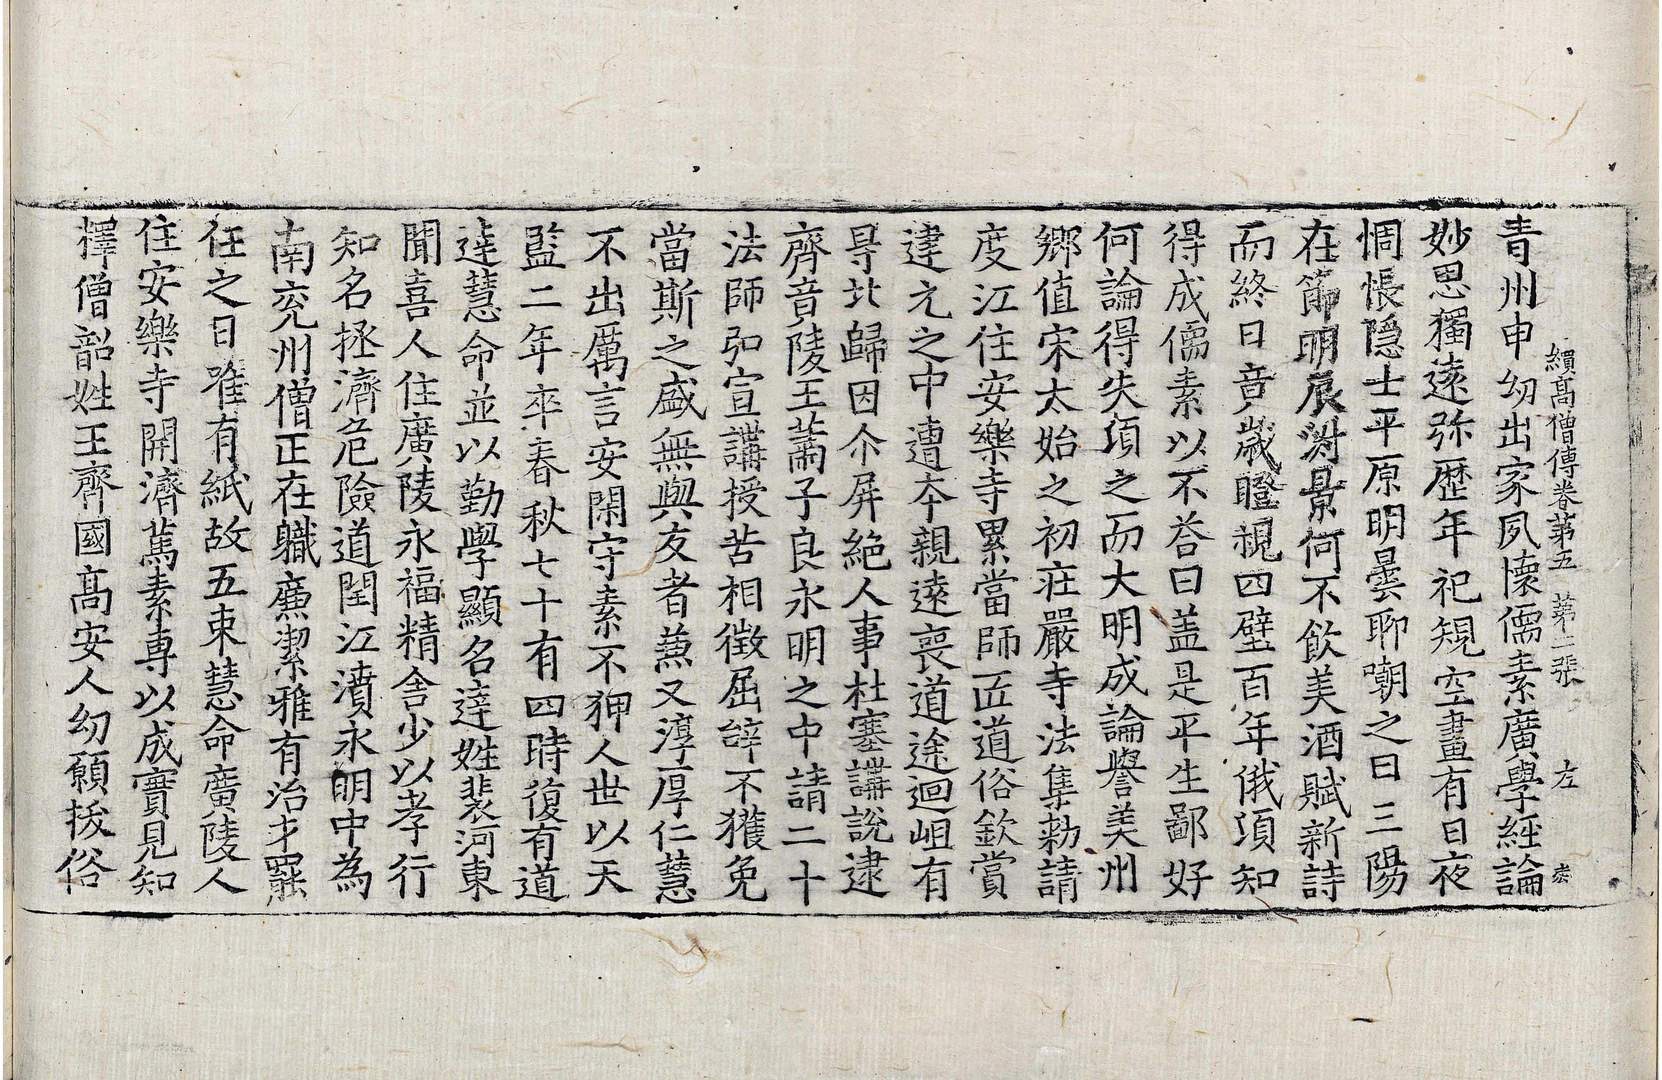 續高僧傳卷第五　第二張　左
青州申幼出家夙懷儒素廣學經論
妙思獨遠弥歷年祀覌空晝有日夜
惆悵隱士平原明曇聊嘲之曰三陽
在節明辰淑景何不飲美酒賦新詩
而終日竟歲瞪視四壁百年俄頃知
得成儒素以不荅曰盖是平生鄙好
何論得失頃之而大明成論譽美州
鄉值宋太始之初㽵嚴寺法集勑請
度江住安樂寺累當師匠道俗欽賞
建元之中遭夲親遠喪道途迴岨有
㝵北歸因尒屏絕人事杜塞講說逮
齊竟陵王蕭子良永明之中請二十
法師弘宣講授苦相徵屈辝不獲免
當斯之盛無與友者兼又淳厚仁慧
不出厲言安閑守素不狎人世以天
監二年卒春秋七十有四時復有道
達慧命並以勤學顯名達姓裴河東
聞喜人住廣陵永福精舍少以孝行
知名拯濟危險道聞江濆永明中為
南兖州僧正在職廉潔雅有治才罷
任之日唯有紙故五束慧命廣陵人
住安樂寺開濟篤素專以成實見知
釋僧韶姓王齊國高安人幼願拔俗